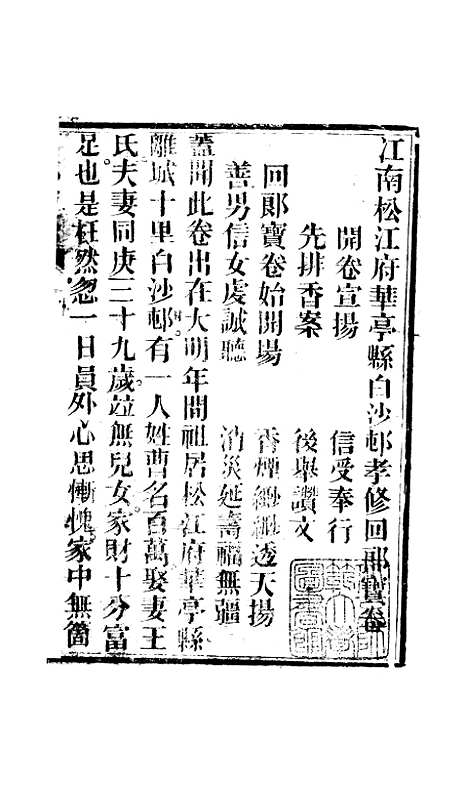 江南松江府華亭縣白沙邨孝修回郎寶卷
開卷宣揚　信受奉行
先排香案　後舉讚文
回郎寶卷始開場　香煙繚繞透天揚
善男信女虔誠聽　消災延壽福無疆
蓋聞此卷出在大明年間祖居松江府華亭縣
離城十里白沙邨有一人姓曹名百萬娶妻王
氏夫妻同庚三十九歲並無兒女家財十分富
足也是枉然忽一日員外心思慚愧家中無箇